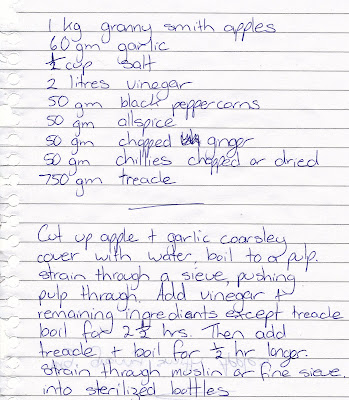 1 kg granny smith apples
60 gm garlic
½ cup salt
2 litres vinegar
50 gm black peppercorns
50 gm allspice
50 gm chopped ginger
50 gm chillies chopped or dried
750 gm treacle
Cut up apple + garlic coarsley
cover with water, boil to a pulp.
strain through a sieve, pushing
pulp through. Add vinegar +
remaining ingredients except treacle
boil for 2 ½ hrs. Then add
treacle + boil for ½ hr longer.
strain through muslin or fine sieve.
into sterilized bottles